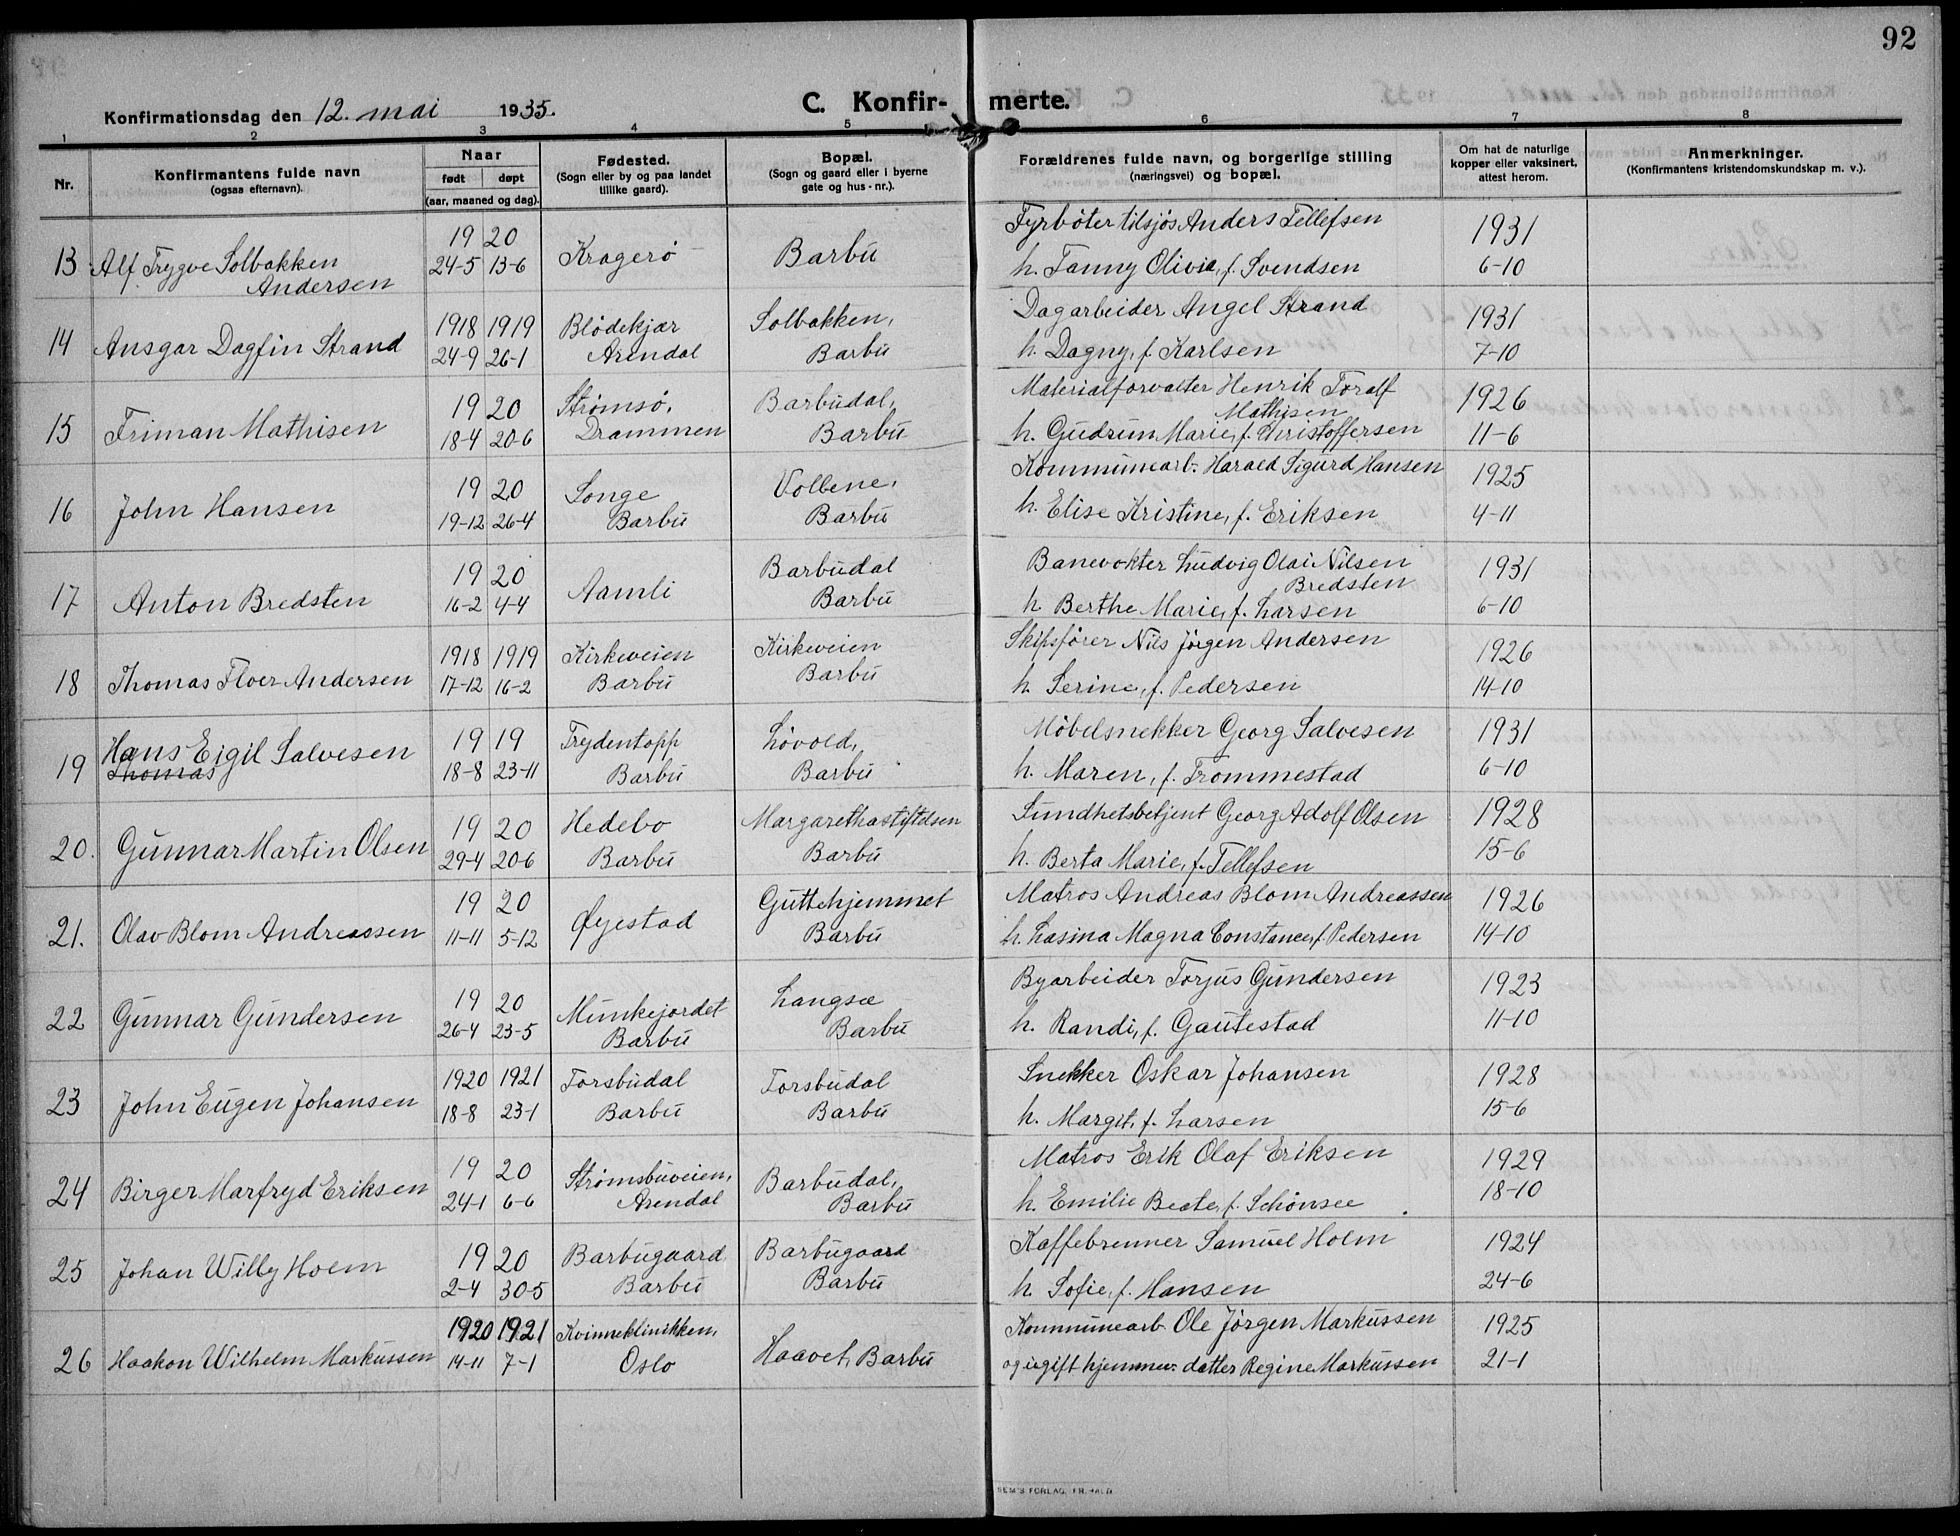 92
Konfirmationsdag den 12. mai 1935.
C. Konfir- merte.
1 2 3 4 5 6 7 8
Nr.
Konfirmantens fulde navn
(ogsaa efternavn).
Naar
født døpt
(aar, maaned og dag).
Fødested.
(Sogn eller by og paa landet
tillike gaard).
Bopæl.
(Sogn og gaard eller i byerne
gate og hus-nr.).
Forældrenes fulde navn, og borgerlige stilling
(næringsvei) og bopæl.
Om hat de naturlige
kopper eller vaksinert,
attest herom.
Anmerkninger.
(Konfirmantens kristendomskundskap m. v.).
19 20 Fyrbøter tilsjøs Anders Tellefsen 1931
13 Alf Trygve Solbakken 24-5 13-6 Kragerø Barbu h. Fanny Olivia, f. Svendsen 6-10
Andersen
1918 1919 Blødekjær Solbakken, Dagarbeider Angel Strand 1931
14 Ansgar Dagfin Strand 24-9 26-1 Arendal Barbu h. Dagny, f. Karlsen 7-10
19 20 Strømsø, Barbudal, Materialforvalter Henrik Toralf 1926
Mathisen
15 Friman Mathisen 18-4 20-6 Drammen Barbu h. Gudrun Marie, f. Christoffersen 11-6
19 20 Songe Volbene, Kommunearb. Harald Sigurd Hansen 1925
16 John Hansen 19-12 26-4 Barbu Barbu h. Elise Kristine, f. Eriksen 4-11
19 20 Barbudal Banevokter Ludvig Olai Nilsen 1931
Bredsten
17 Anton Bredsten 16-2 4-4 Aamli Barbu h Berthe Marie, f. Larsen 6-10
1918 1919 Kirkeveien Kirkeveien Skipsfører Nils Jörgen Andersen 1926
18 Thomas Floer Andersen 17-12 16-2 Barbu Barbu h. Serine, f. Pedersen 14-10
Hans Eigil Salvesen 19 19 Frydentopp Løvold, Møbelsnekker Georg Salvesen 1931
19 Thomas 18-8 23-11 Barbu Barbu h. Maren, f. Trommestad 6-10
19 20 Hedebo Margarethastiftelsen Sundhetsbetjent Georg Adolf Olsen 1928
20. Gunnar Martin Olsen 29-4 20-6 Barbu Barbu h. Berta Marie, f. Tellefsen 15-6
19 20 Guttehjemmet Matros Andreas Blom Andreassen 1926
21. Olav Blom Andreassen 11-11 5-12 Øyestad Barbu h. Lasina Magna Constance, f. Pedersen 14-10
19 20 Munkejordet Langsæ Byarbeider Torjus Gundersen 1923
22 Gunnar Gundersen 26-4 23-5 Barbu Barbu h. Randi, f. Gautestad 11-10
1920 1921 Torsbudal Torsbudal Snekker Oskar Johansen 1928
23 John Eugen Johansen 18-8 23-1 Barbu Barbu h. Margit, f. Larsen 15-6
19 20 Strømsbuveien, Barbudal, Matros Erik Olaf Eriksen 1929
24 Birger Marfryd Eriksen 24-1 6-6 Arendal Barbu h. Emilie Beate, f. Schönsee 18-10
19 20 Barbugaard Barbugaard Kaffebrenner Samuel Holm 1924
25 Johan Willy Holm 2-4 30-5 Barbu Barbu h. Sofie, f. Hansen 24-6
1920 1921 Kvinneklinikken, Kommunearb. Ole Jørgen Markussen 1925
26 Haakon Wilhelm Markussen 14-11 7-1 Oslo Haavet, Barbu og ugift hjemmev. datter Regine Markussen 21-1
SEM'S FORLAG, FR.HALD